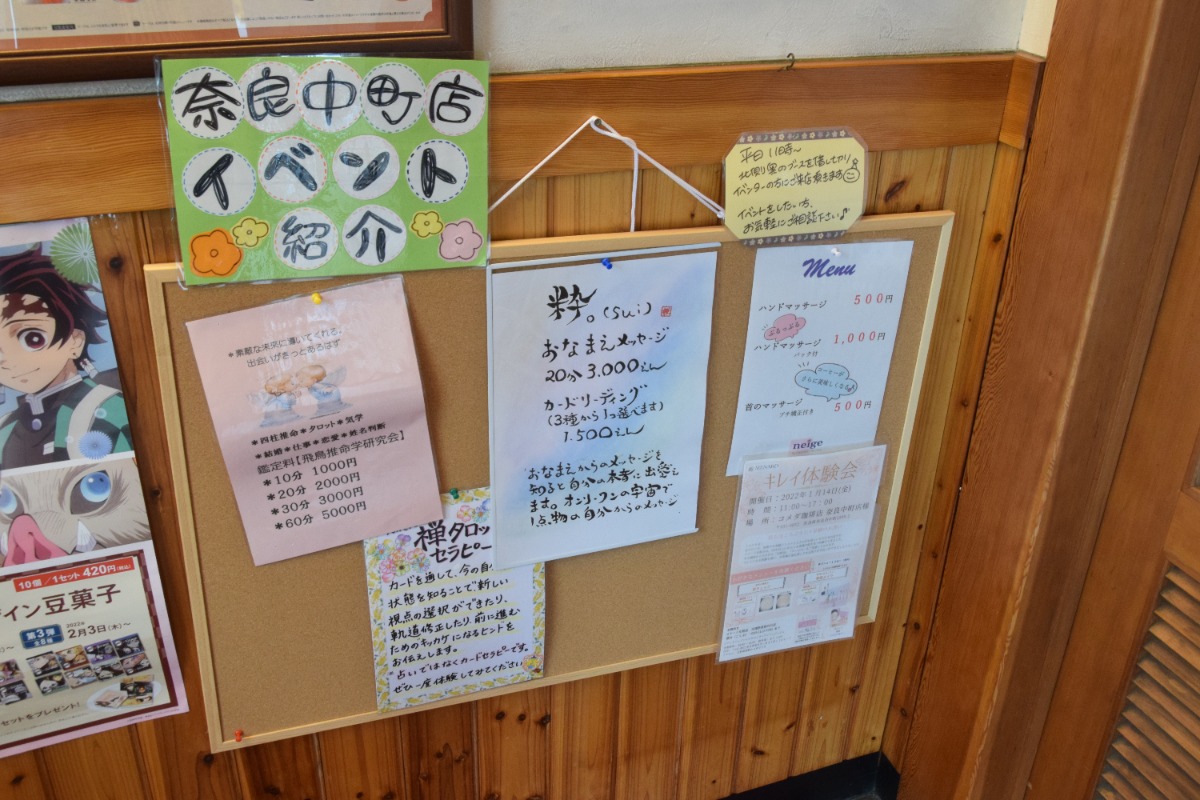 奈良中町店
イベント
紹介
平日 11時~
イベンターの方にご来店頂きます
イベントをしたい方、
お気軽にご相談下さい♪
*素敵な未来に導いてくれる。
出会いがきっとあるはず
*四柱推命*タロット*気学
*結婚*仕事*恋愛*姓名判断
鑑定料【飛鳥推命学研究会】
*10分 1000円
*20分 2000円
*30分 3000円
*60分 5000円
粋。(sui)
おなまえメッセージ
20分 3.000えん
カードリーディング
(3種から1つ選べます)
1.500えん
おなまえからのメッセージを
知ると自分の本音に出会え
ます。オンリーワンの宇宙で
1点物の自分からのメッセージ。
Menu
ハンドマッサージ 500円
ぷるっぷる
ハンドマッサージ 1,000円
パック付
コーヒーが
さらに美味しくなる♪
首のマッサージ 500円
プチ矯正付き
neige
禅タロット
セラピー
カードを通して、今の自分
状態を知ることで、新しい
視点の選択ができたり、
軌道修正したり、前に進む
ためのキッカケになるヒントを
お伝えします。
占いではなくカードセラピーです。
ぜひ一度体験してみてください
キレイ体験会
開催日:2022年1月14日(金)
時 間:11:00~17:00
場 所:コメダ珈琲店 奈良中町店様
10個/1セット420円
イン豆菓子
第3弾
2022年
2月3日(木)~
セットをプレゼント!